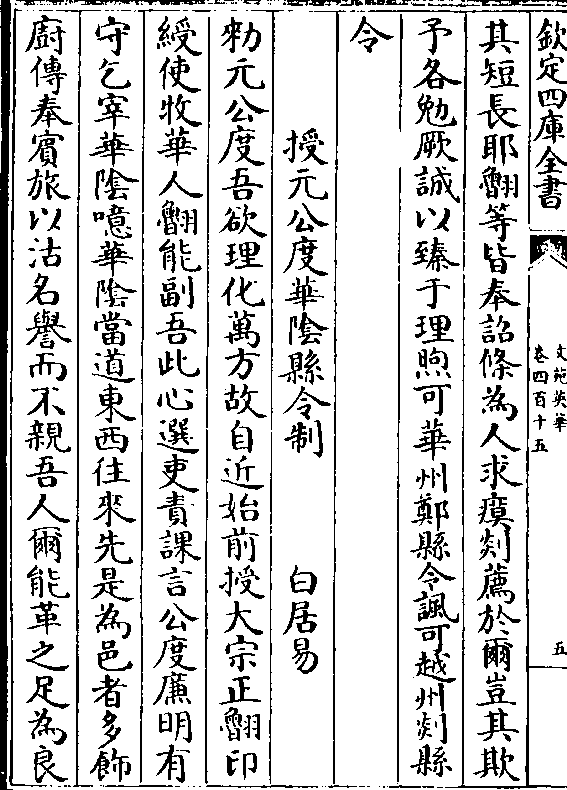 欽定四庫全書
文苑英華
卷四百十五
五
其短長耶翺等皆奉詔條為人求瘼剡薦於爾豈其欺
予各勉厥誠以臻于理煦可華州鄭縣令諷可越州剡縣
令
授元公度華陰縣令制
白居易
勑元公度吾欲理化萬方故自近始前授大宗正翺印
綬使牧華人翺能副吾此心選吏責課言公度廉明有
守乞宰華陰噫華陰當道東西往來先是為邑者多飾
廚傳奉賓旅以沽名譽而不親吾人爾能革之足為良